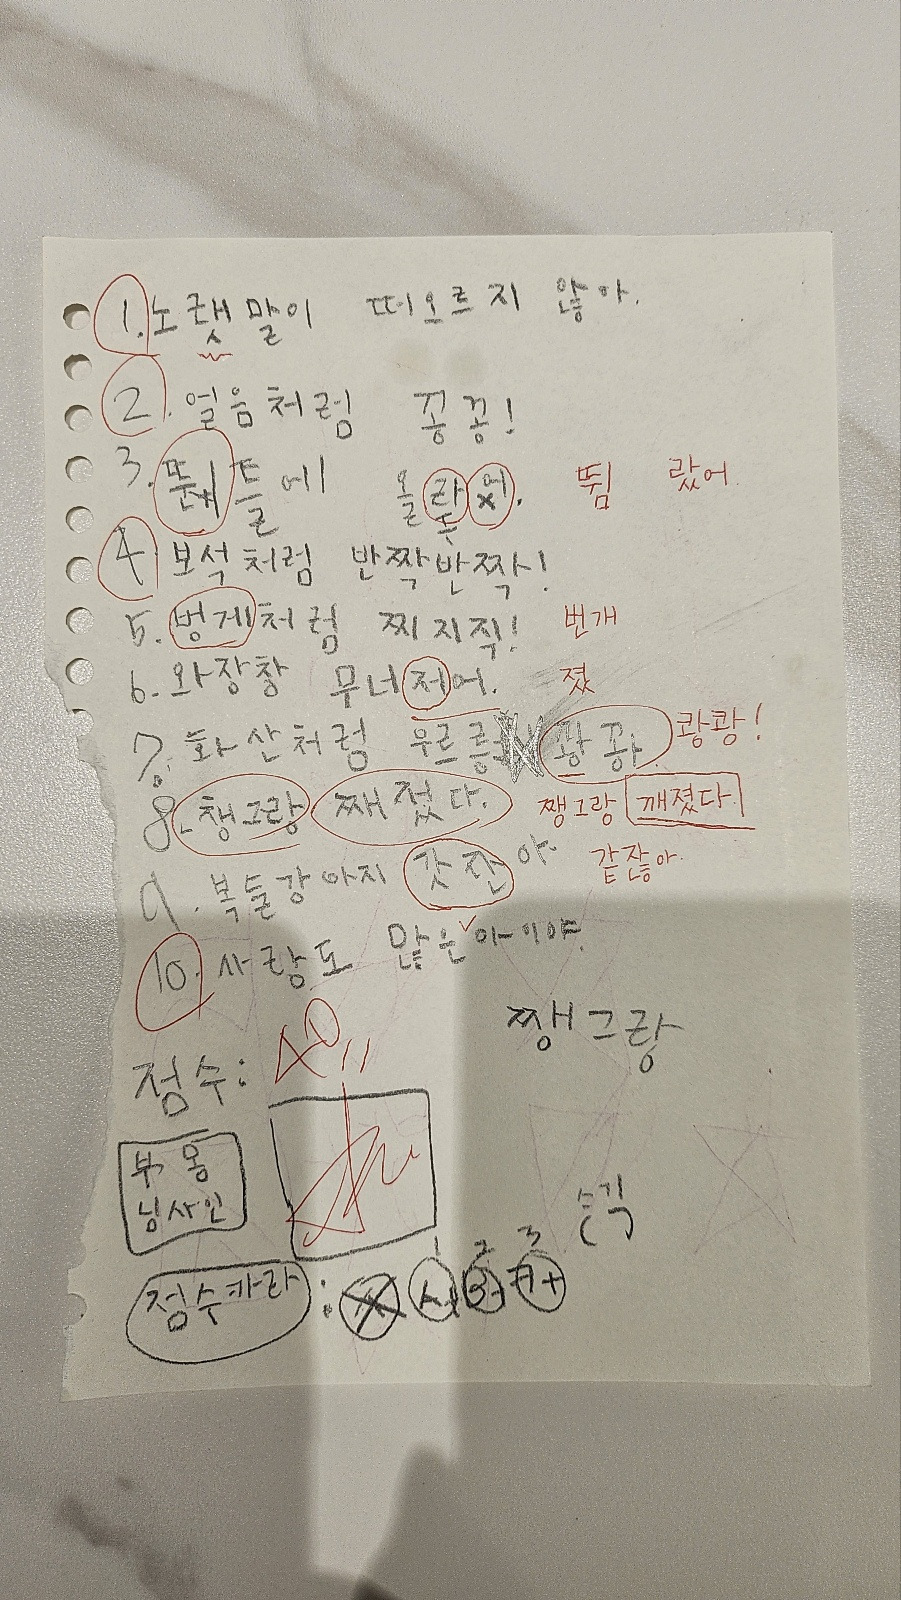 1. 노랫말이 떠오르지 않아.
2. 얼음처럼 꽁꽁!
3. 틀에 올 뜀 랐어.
4. 보석처럼 반짝반짝!
5. 벙게처럼 찌지직! 번개
6. 와장창 무너저어. 졌
7. 화산처럼 우르릉 쾅쾅!
8. 챙그랑 째졌다. 쨍그랑 깨졌다.
9. 복들강아지 갓잔아 같잖아.
10. 사랑도 많은아이야.
쨍그랑
점수: 40
부몽
님사인
1 2 3
점수카라: A B